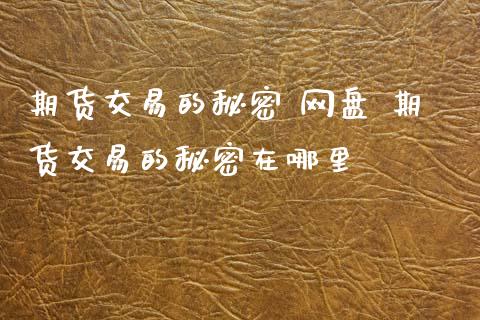 期货交易的秘密 网盘 期
货交易的秘密在哪里